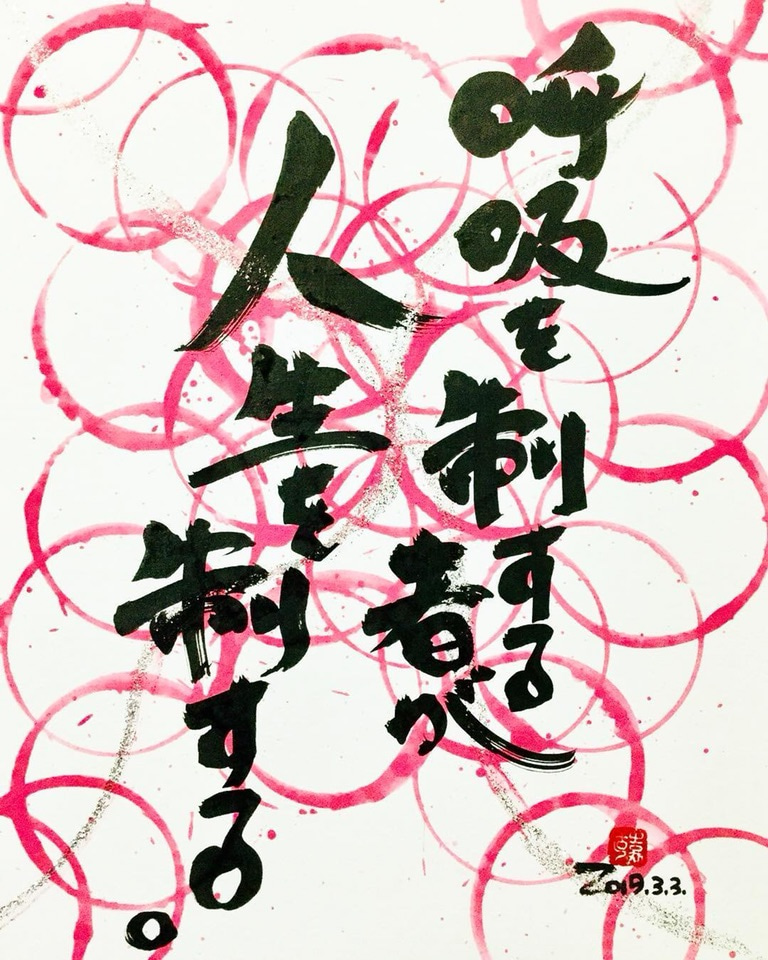 呼吸を
制する
者が
人
生を
制する。
2019.3.3.